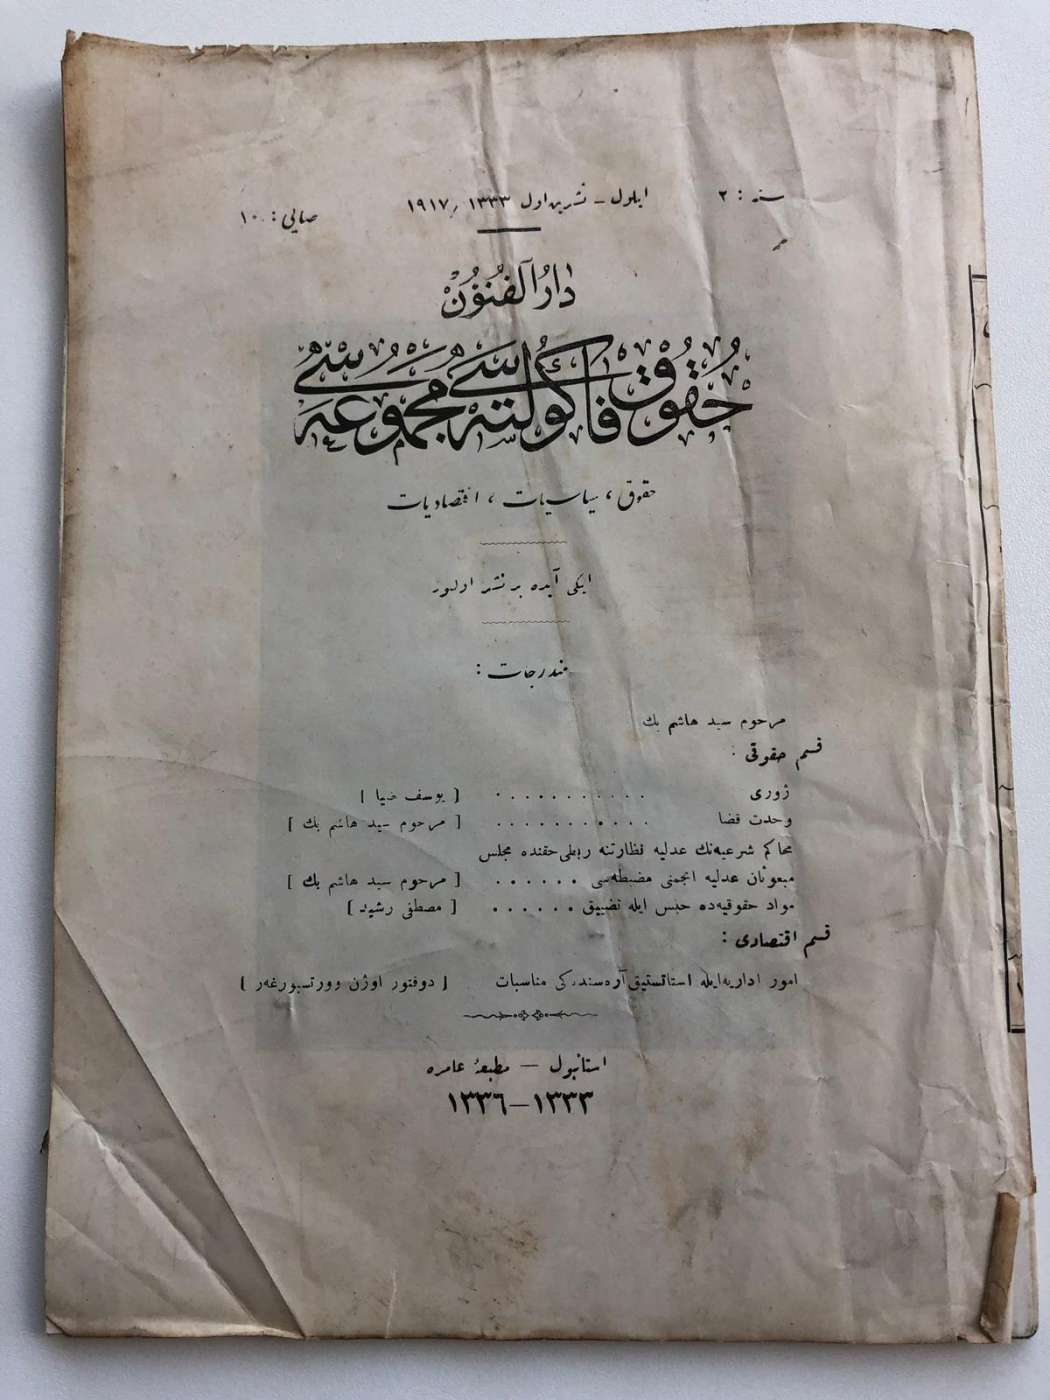 سنه : ٢
ايلول — تشرين اول ١٣٣٣ / ١٩١٧
صايى : ١٠
دار الفنون
حقوق فاكولته سى مجموعه سى
حقوق ، سياسيات ، اقتصاديات
ايكى آيده بر نشر اولنور
مندرجات :
مرحوم سيد هاشم بك
قسم حقوقى :
ژورى . . . . . . . . . . . [ يوسف ضيا ]
وحدت قضا . . . . . . . . . . . [ مرحوم سيد هاشم بك ]
محاكم شرعيه‌نك عدليه نظارتنه ربطى حقنده مجلس
مبعوثان عدليه انجمنى مضبطه‌سى . . . . . . [ مرحوم سيد هاشم بك ]
مواد حقوقيه‌ده حبس ايله تضييق . . . . . . [ مصطفى رشيد ]
قسم اقتصادى :
امور اداريه ايله استاتستيق آره‌سنده‌كى مناسبات [ دوقتور اوژن وورتسبورغه‌ر ]
استانبول — مطبعۀ عامره
١٣٣٣ — ١٣٣٦